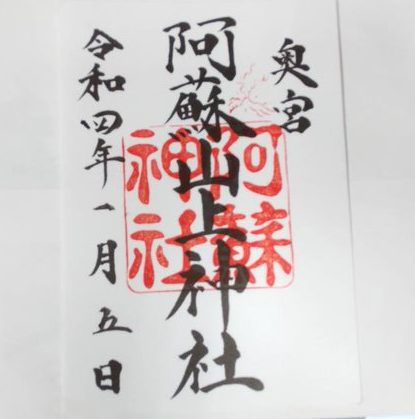 奥宮
阿蘇山上神社
阿蘇
神社
令和四年一月五日